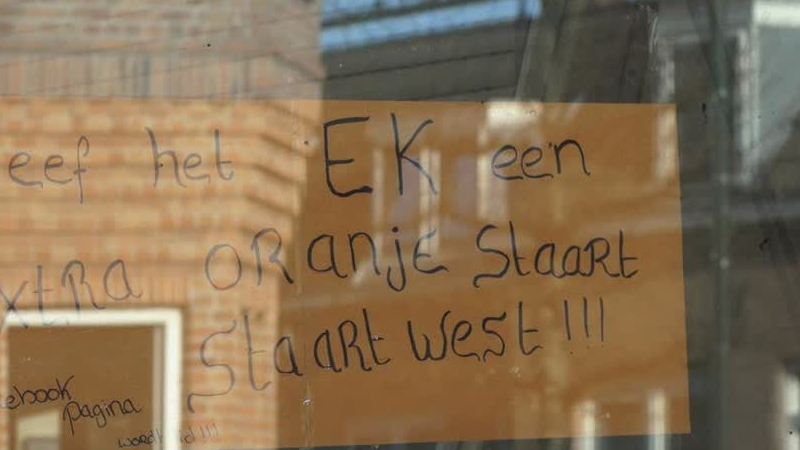 eef het EK een
xtra oranje staart
Staart west !!!
ebook
pagina
wordt lid!!!